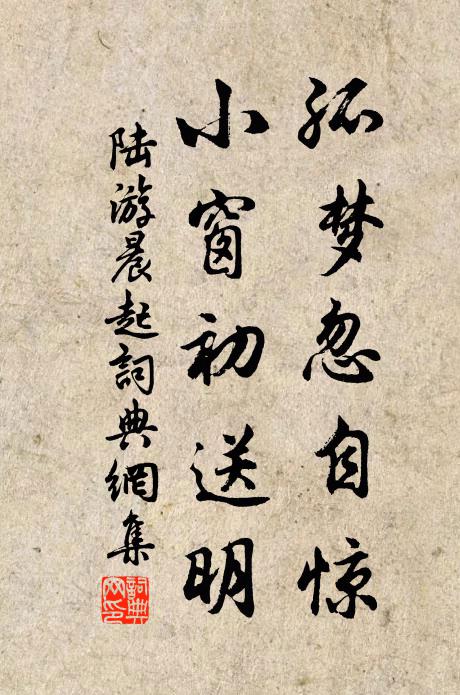 孤梦忽自惊
小窗初送明
陆游晨起詞典網集
詞典网印